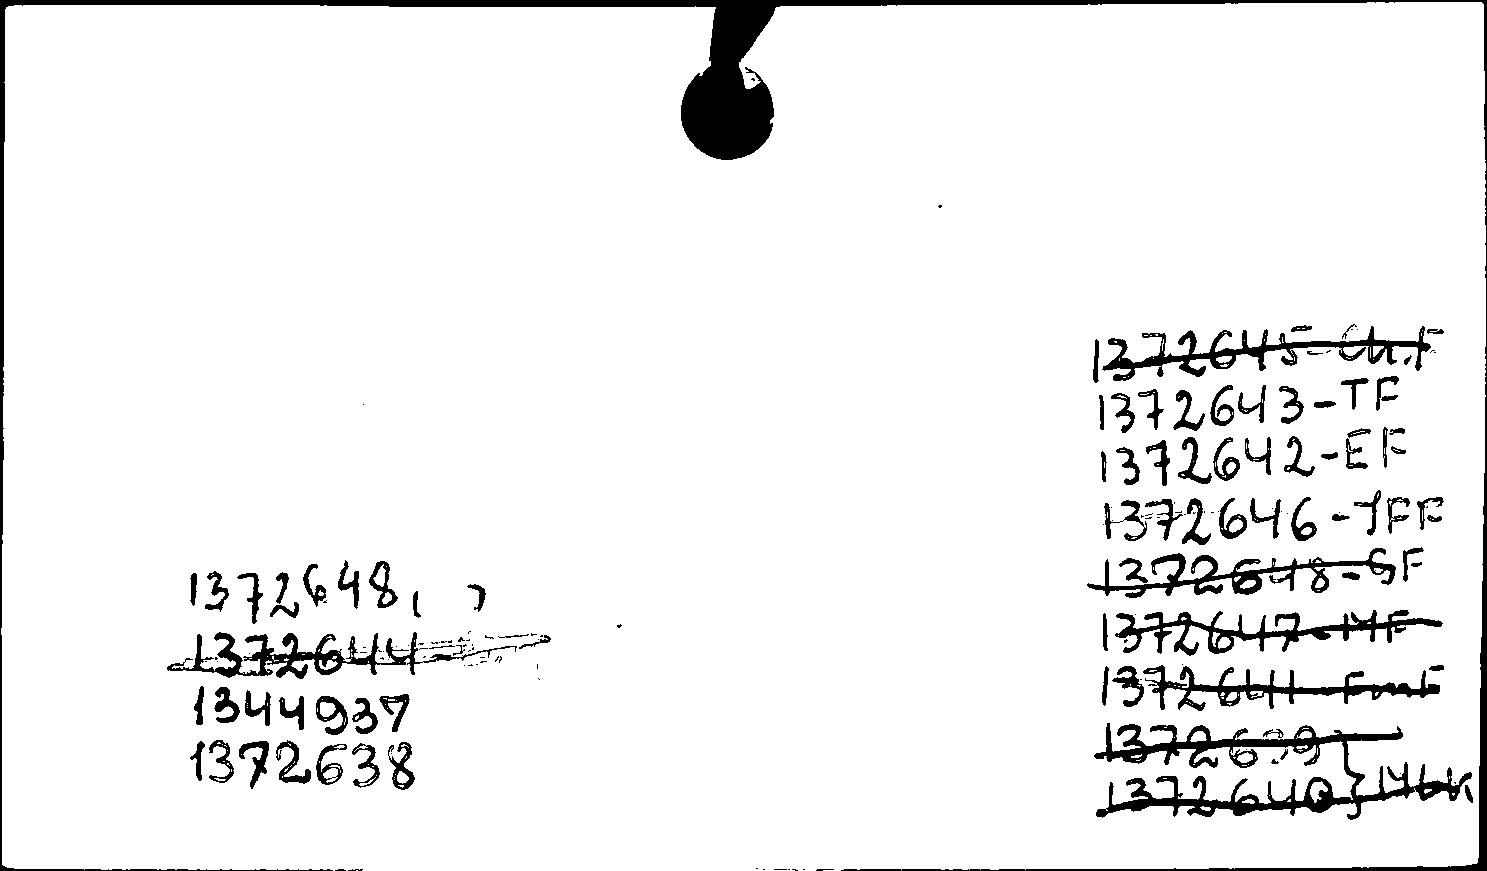 1372645-Ch.F
1372643-TF
1372642-EF
1372646-JFF
1372648-SF
1372647-MF
1372641-FmF
1372639
1372640
1372648,
1372644-
1344937
1372638